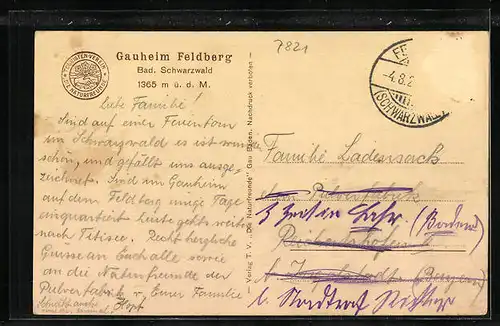 7821
Gauheim Feldberg
Bad. Schwarzwald
1365 m ü. d. M.
TOURISTEN-VEREIN
DIE NATURFREUNDE
Liebe Familie!
Sind auf einer Ferientour
im Schwarzwald es ist wunder
schön, und gefällt uns ausge-
zeichnet. Sind im Gauheim
auf dem Feldberg einige Tage
einquartiert Heute gehts weiter
nach Titisee. Recht herzliche
Grüsse an Euch alle sowie
an die Naturfreunde der
Pulverfabrik Eurer Familie
Hopf
— Verlag T. V. „Die Naturfreunde" Gau Baden. Nachdruck verboten —
-4.8.2
(SCHWARZWALD)
Familie Ladensack
Pulverfabrik
Lahr. (Baden)
(Bayern)
b.